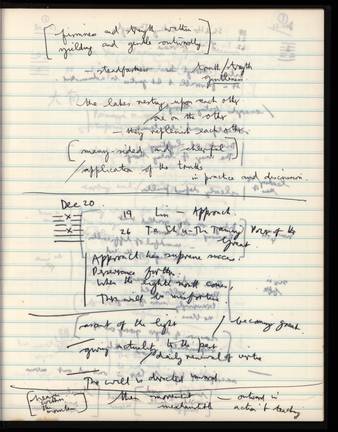 firmness and strength within
yielding and gentle outwardly
— steadfastness truth/strength
gentleness
the lakes resting upon each other
one on the other
— they replenish each other
many-sided and cheerful
application of the truths
in practice and discussion
Dec 20
19 Lin — Approach
26 Ta Ch'u - The Taming Power of the
Great
Approach has supreme success
Perseverance furthers
When the eighth month comes,
There will be misfortune
ascent of the light / becoming great
giving actuality to the past
daily renewal of virtue
The will is directed inward
heaven
within the
mountain
then movement — outward in
action & teaching